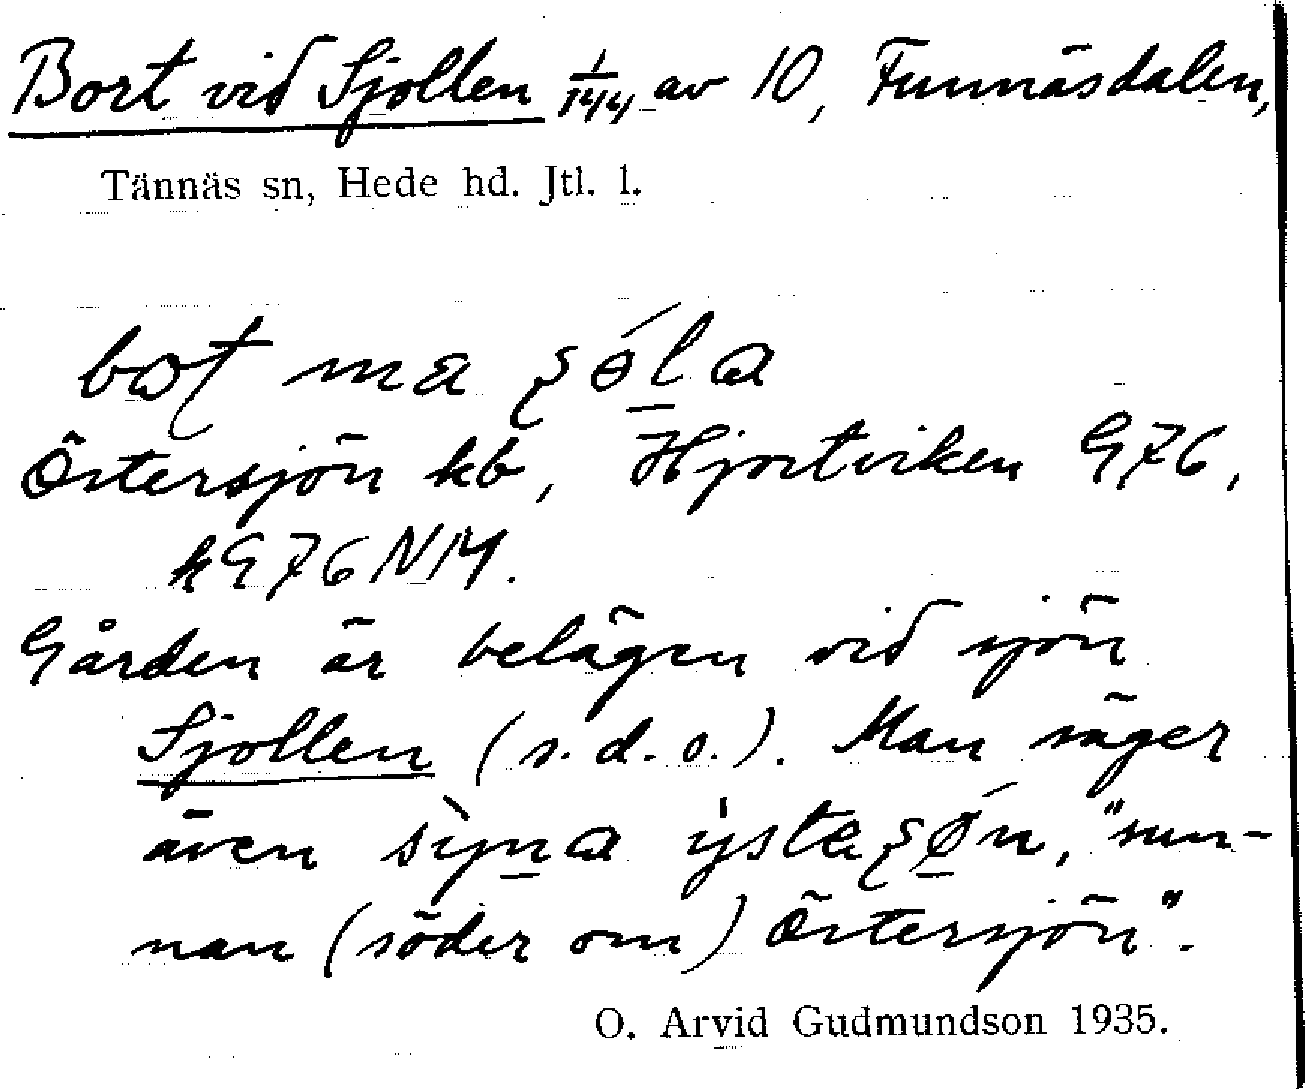 Bort vid Sjollen 1/144 av 10, Funnäsdalen,
Tännäs sn, Hede hd. Jtl. l.
Östersjön kb, Hjortviken G76,
kG76NM.
Gården är belägen vid sjön
Sjollen (s.d.o.). Man säger
även
"sun-
nan (söder om) Östersjön".
O. Arvid Gudmundson 1935.